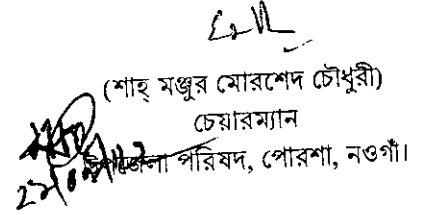 (শাহ্ মঞ্জুর মোরশেদ চৌধুরী)
চেয়ারম্যান
উপজেলা পরিষদ, পোরশা, নওগাঁ।